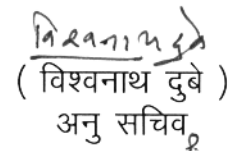 विश्वनाथ दुबे
( विश्वनाथ दुबे )
अनु सचिव